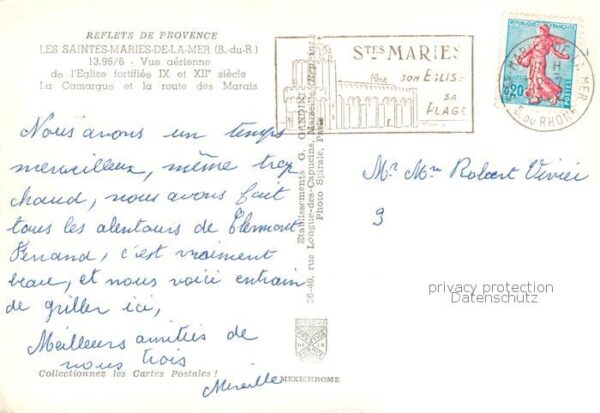 REFLETS DE PROVENCE
LES SAINTES-MARIES-DE-LA-MER (B.-du-R.)
13.96/6 - Vue aérienne
de l'Eglise fortifiée IX et XIIe siècle
La Camargue et la route des Marais
STES MARIES
SON EGLISE
SA
PLAGE
REPUBLIQUE FRANÇAISE
0,20
POSTES
B. DU RHONE
Nous avons un temps
merveilleux, même trop
chaud, nous avons fait
tous les alentours de Clermont
Ferrand, c'est vraiment
beau, et nous voici entrain
de griller ici,
Meilleurs amitiés de
nous trois
Mireille
Collectionnez les Cartes Postales !
Etablissements G. GANDINI
36-40, rue Longue-des-Capucins, Marseille
Photo Spirale, Paris
MEXICHROME
Mr Mme Robert Vivier
9
privacy protection
Datenschutz